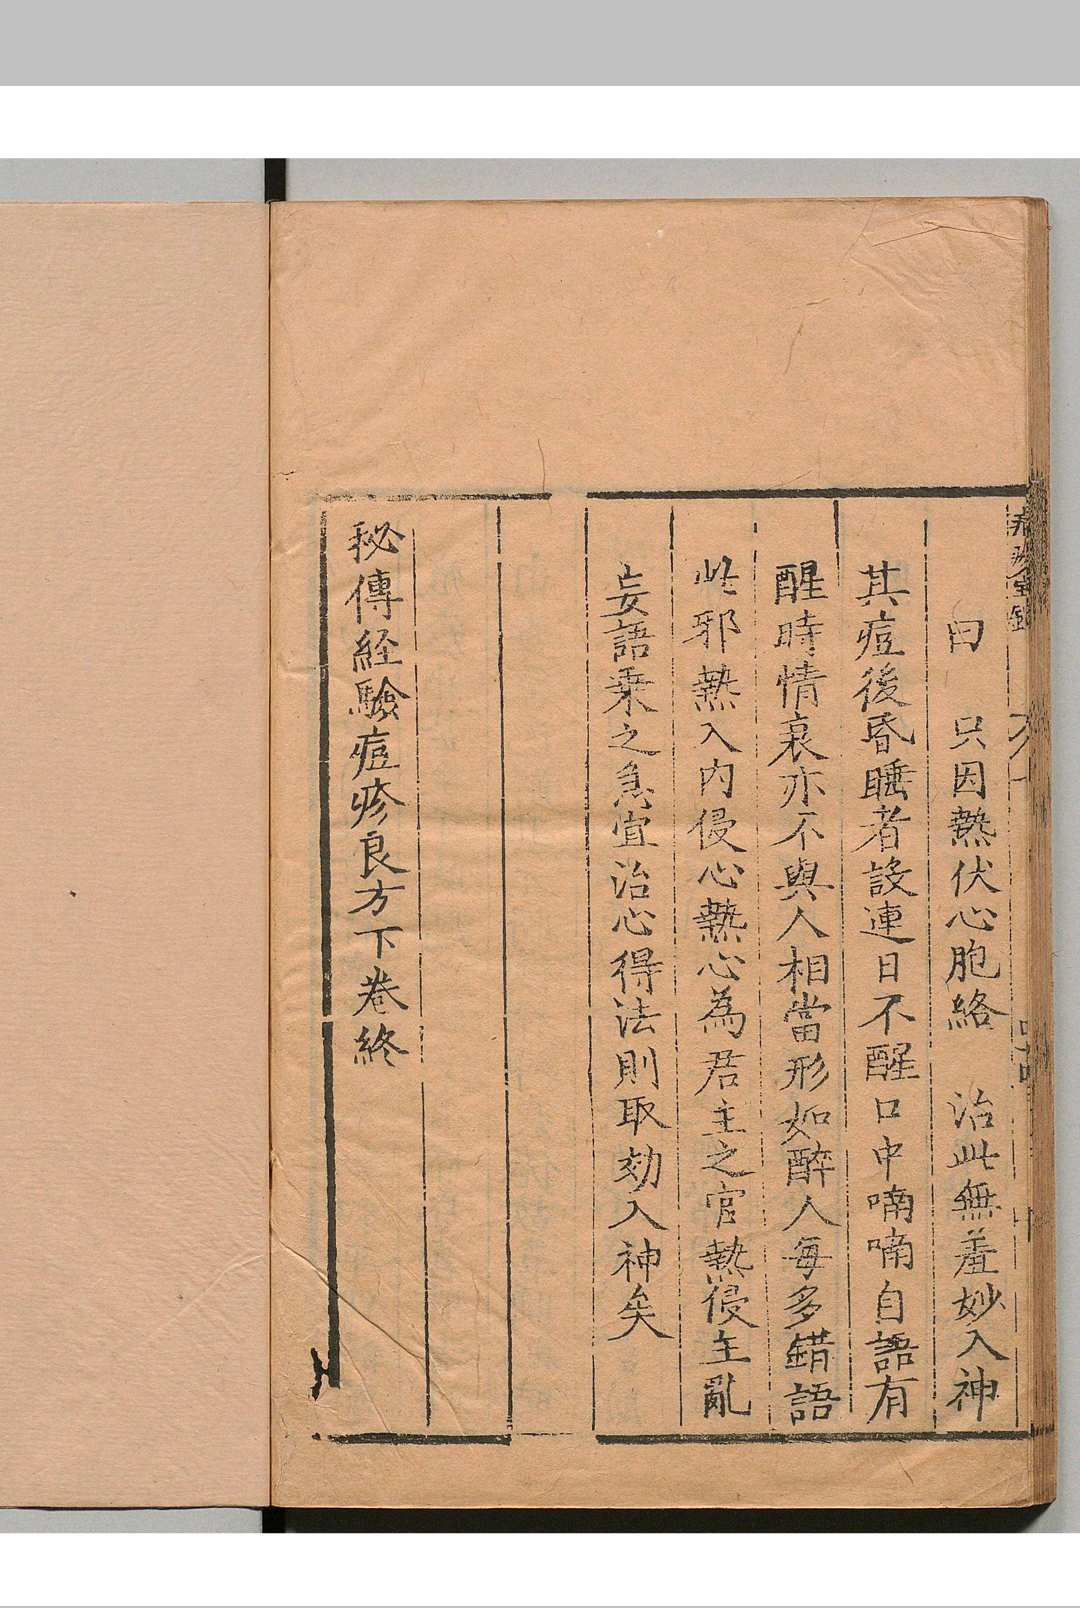 曰　只因熱伏心胞絡　治此無羞妙入神
其痘後昏睡者設連日不醒口中喃喃自語有
醒時情哀亦不與人相當形如醉人每多錯語
此邪熱入內侵心熱心為君主之官熱侵主亂
妄語乘之急宜治心得法則取効入神矣
秘傳経驗痘疹良方下卷終